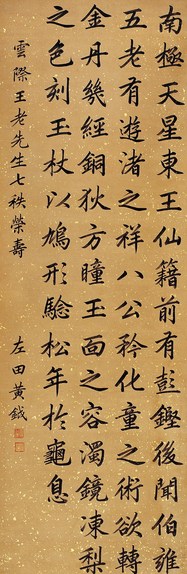 南極天星東王仙籍前有彭鏗後聞伯雄
五老有遊渚之祥八公矜化童之術欲轉
金丹幾經銅狄方瞳玉面之容濁鏡凍梨
之色刻玉杖以鳩形驗松年於龜息
雲際王老先生七秩榮壽
左田黃鉞